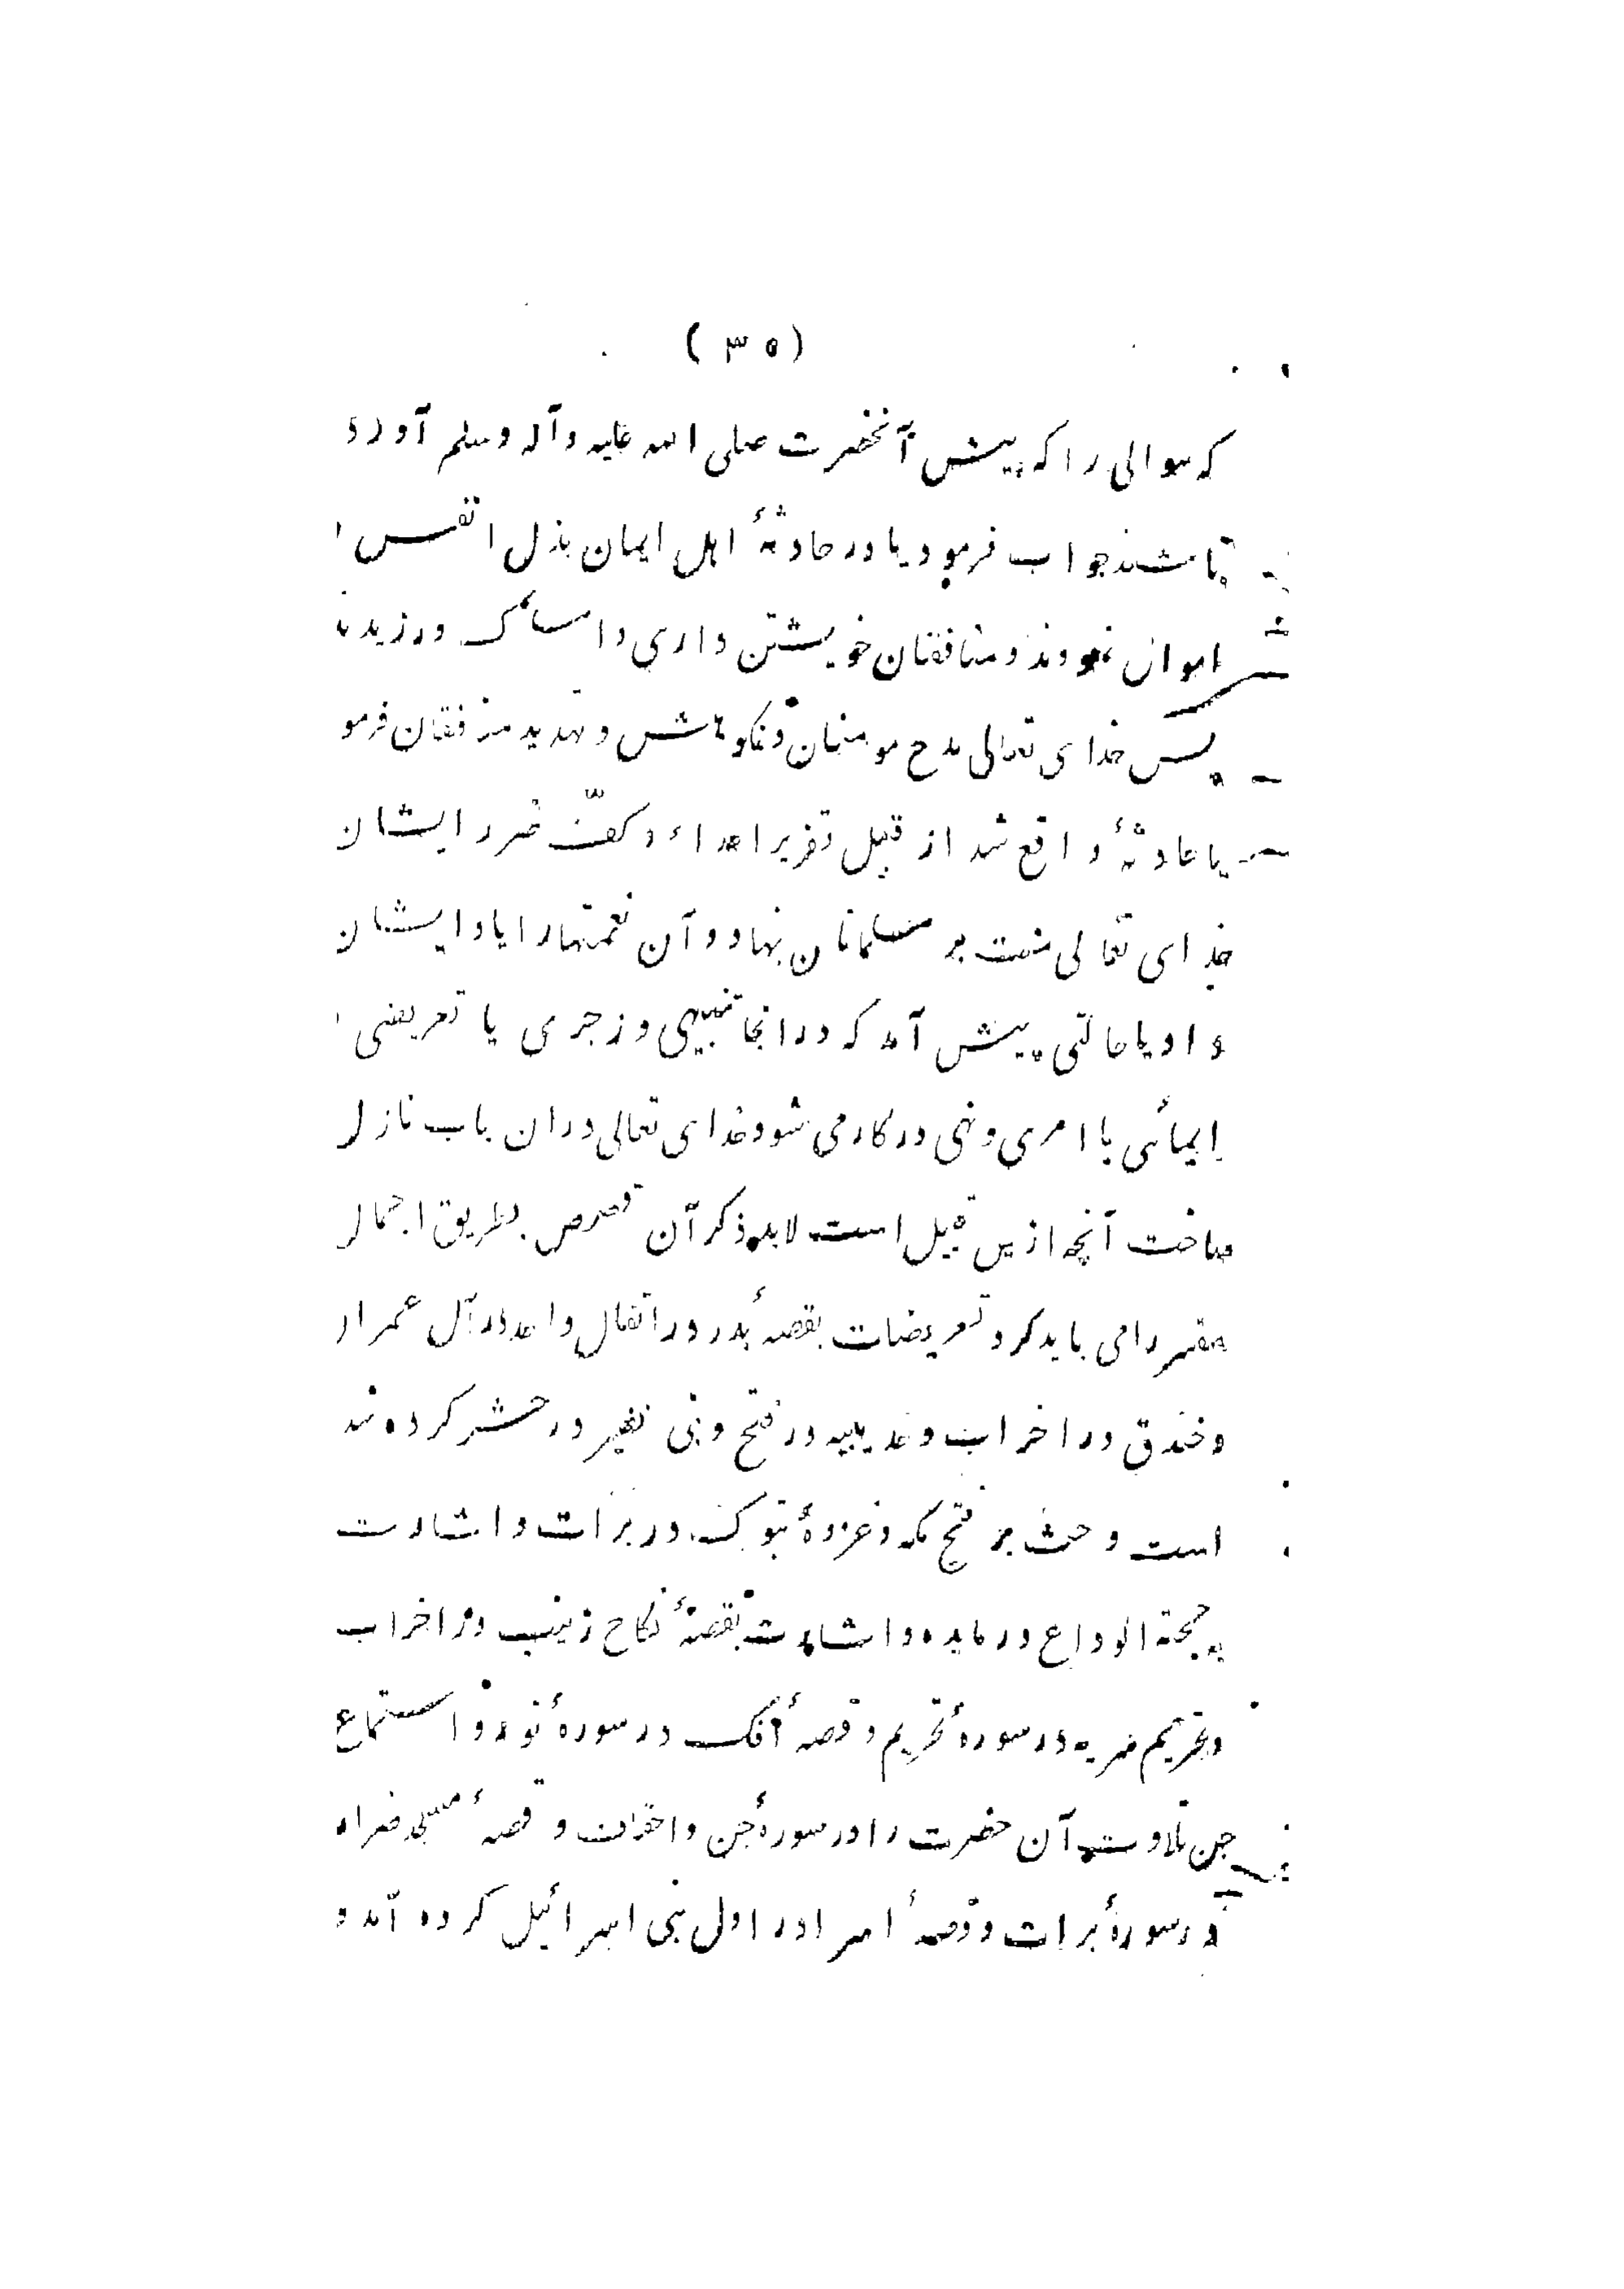 ( ۳۵ )
که سوالی را که پیش آنحضرت صلی الله علیه وآله وسلم آورد
باشند جواب فرمود یا در حادثهٔ اہل ایمان بذل انفس
اموال نمودند و منافقان خویشتن داری و امساک ورزیدند
پس خدای تعالی مدح مومنان و نکوهش و تهدید منافقان فرمو
یا حادثهٔ واقع شد از قبیل اعداء و کفّ ضرر ایشان
خدای تعالی منت بر مسلمانان نهاد و آن نعمتها را یاد ایشان
داد یا حالتی پیش آمد که درانجا تنبیهی و زجری یا تعریضی
ایمائی یا امری و نهی در کار می شود خدای تعالی دران باب نازل
ساخت آنچه ازین قبیل است لابد ذکر آن قصص بطریق اجمال
مفسر را می باید کرد تعریضات بقصهٔ بدر در انفال و احد در آل عمران
و خندق در احزاب و حدیبیه در فتح و بنی نضیر در حشر کرده شد
است و حث بر فتح مکه و غزوهٔ تبوک در برات و اشارت
به حجة الوداع در مایده و اشارت بقصهٔ نکاح زینب در احزاب
و تحریم سریه در سورهٔ تحریم و قصهٔ افک در سورهٔ نور و استماع
جن تلاوت آن حضرت را در سورهٔ جن و احقاف و قصهٔ مسجد ضرار
در سورهٔ برات و قصهٔ اسرا در اول بنی اسرائیل کرده آمد و